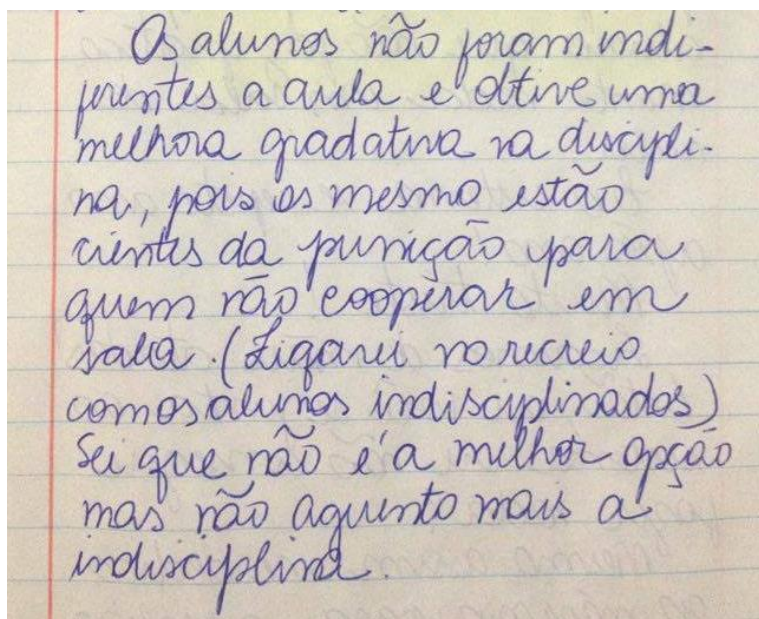 Os alunos não foram indi-
ferentes a aula e obtive uma
melhora gradativa na discipli-
na, pois os mesmo estão
cientes da punição para
quem não cooperar em
sala. (Ficarei no recreio
com os alunos indisciplinados)
Sei que não é a melhor opção
mas não aguento mais a
indisciplina.